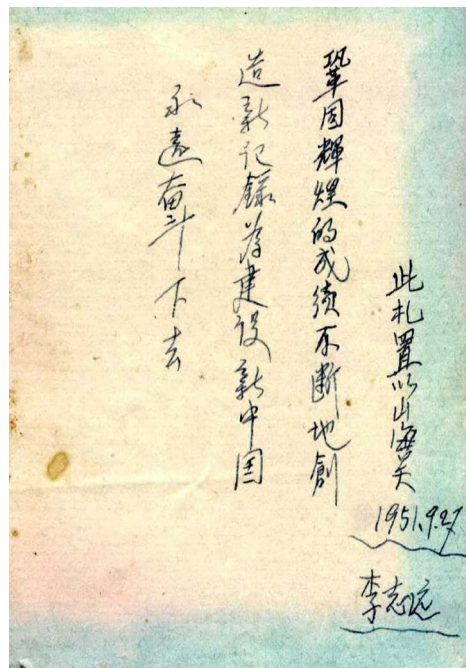 此札置以山海关
1951.9.27
李志远
巩固辉煌的成绩不断地創
造新记錄为建设新中国
永遠奋斗下去